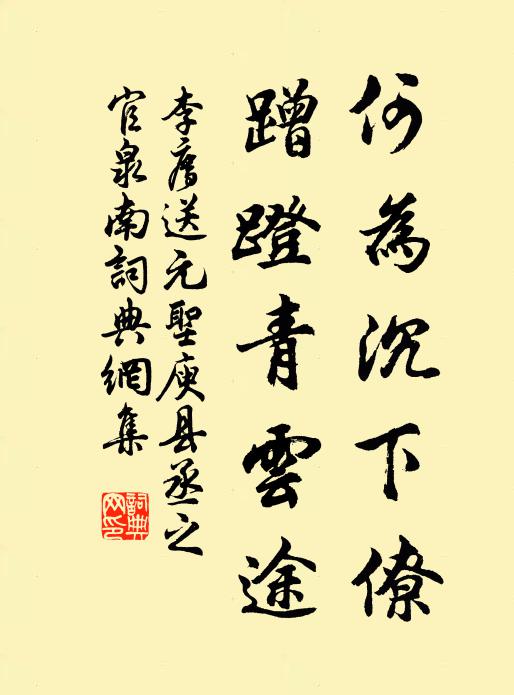 何為沉下僚
蹭蹬青雲途
李膺送元聖庾县丞之
官泉南詞典網集
詞典
网印